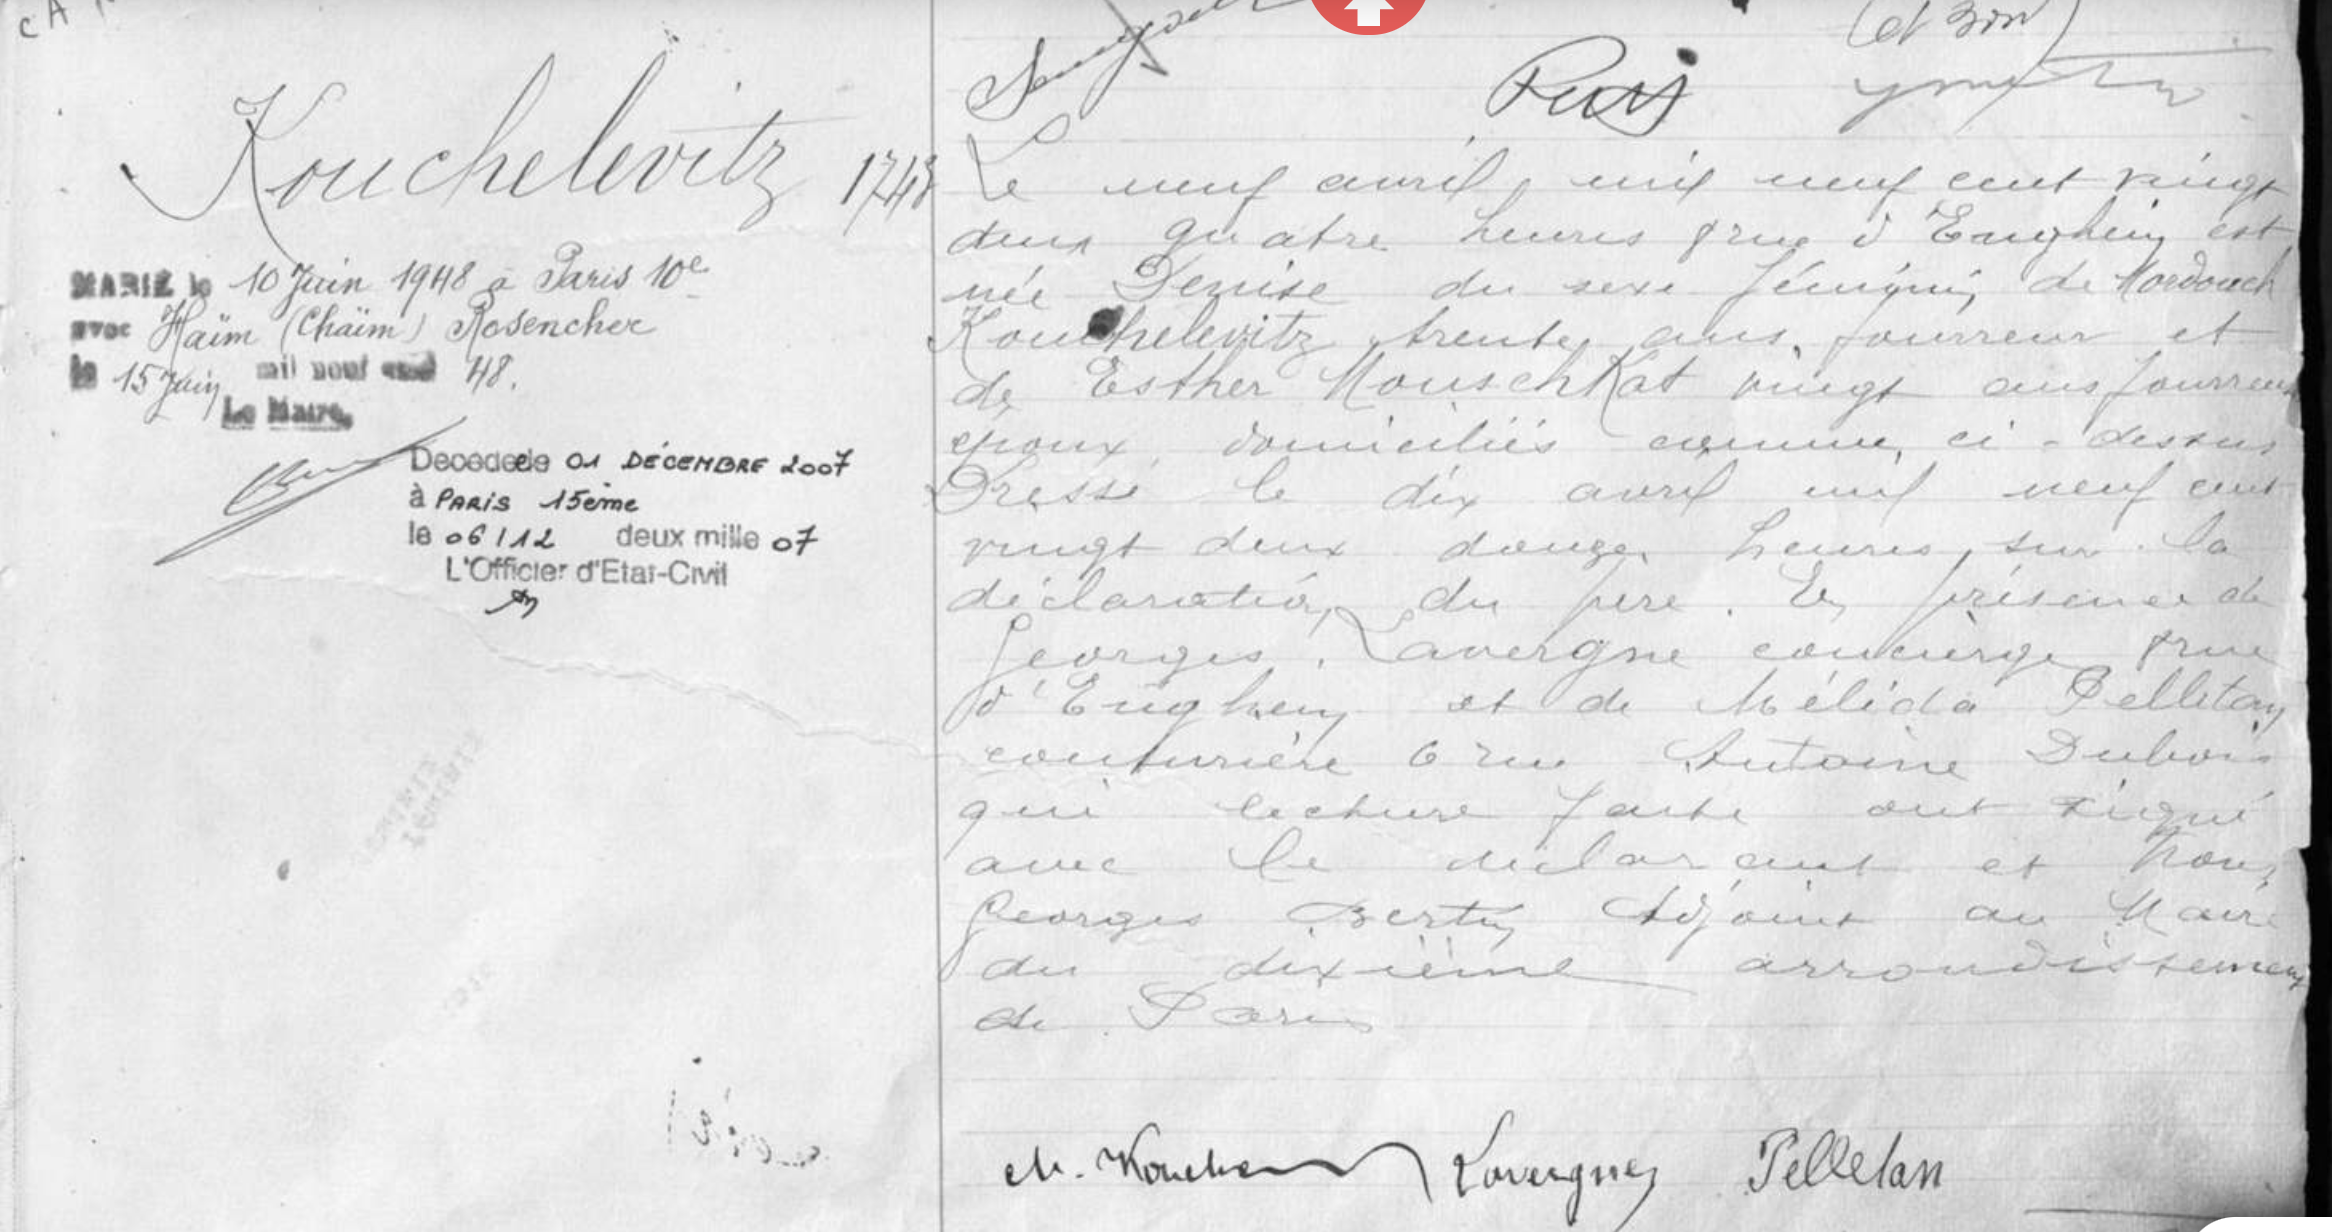 Kouchelevitz 1743
MARIÉ le 10 Juin 1948 à Paris 10e
avec Haïm (Chaïm) Rosencher
le 15 Juin mil neuf cent 48.
Le Maire,
Décédée le 01 DÉCEMBRE 2007
à PARIS 15ème
le 06/12 deux mille 07
L'Officier d'Etat-Civil
Le neuf avril, mil neuf cent vingt
deux quatre heures 8 rue d'Enghien est
née Denise du sexe féminin, de Mordouch
Kouchelevitz trente ans, fourreur et
de Esther Mouschkat vingt ans fourreuse
époux, domiciliés comme ci-dessus
Dressé le dix avril mil neuf cent
vingt deux douze heures, sur la
déclaration du père. En présence de
Georges Lavergne concierge 8 rue
d'Enghien et de Mélida Pelletan
couturière 6 rue Antoine Dubois
qui lecture faite ont signé
avec le déclarant et Nous,
Georges Bertin Adjoint au Maire
du dixième arrondissement
de Paris
Lavergne Pelletan